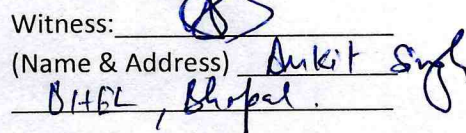 Witness:
(Name & Address) Ankit Singh
BHEL, Bhopal.